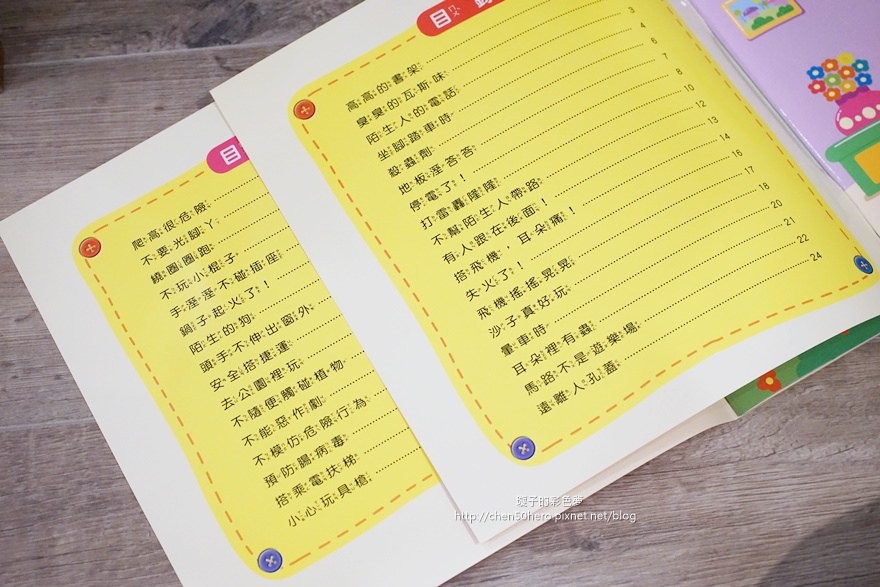 目ㄇㄨˋ
高高的書架
臭臭的瓦斯味
陌生人的電話 3
坐腳踏車時 4
殺蟲劑 6
地板溼答答 7
停電了！ 8
打雷轟隆隆 10
不幫陌生人帶路 12
有人跟在後面！ 13
搭飛機，耳朵痛！ 14
失火了！ 16
飛機搖搖晃晃 17
沙子真好玩 18
暈車時 20
耳朵裡有蟲 21
馬路不是遊樂場 22
遠離人孔蓋 24
目
爬高很危險
不要光腳丫
繞圈圈跑
不玩小棍子
手溼溼不碰插座
鍋子起火了！
陌生的狗
頭手不伸出窗外
安全搭捷運
去公園裡玩
不隨便觸碰植物
不能惡作劇
不模仿危險行為
預防腸病毒
搭乘電扶梯
小心玩具槍
http://chen50hero.pixnet.net/blog